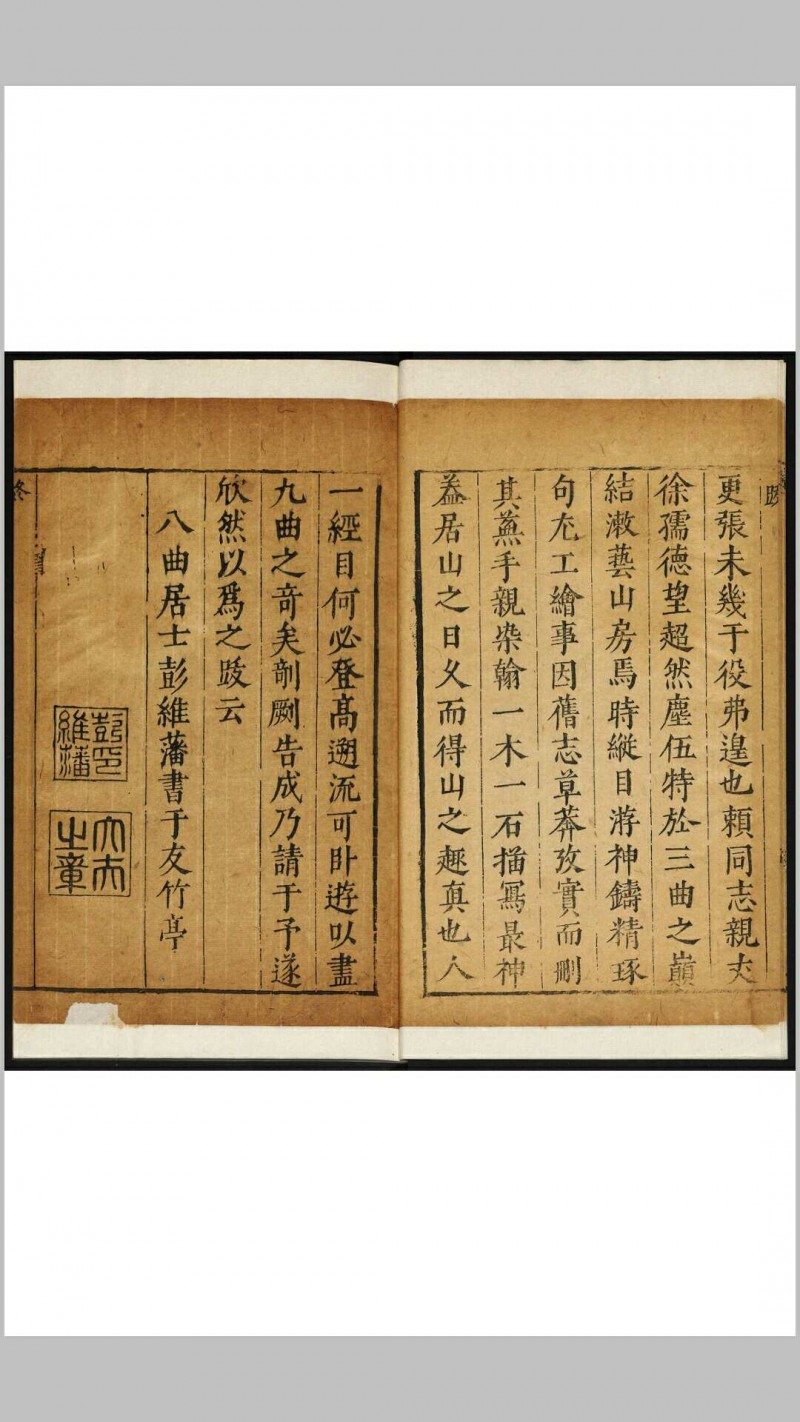 跋
更張未幾于役弗遑也頼同志親友
徐孺德望超然塵伍特於三曲之巔
結漱藝山房焉時縱目游神鑄精琢
句尤工繪事因舊志草莽攷實而刪
其蕪手親染翰一木一石描寫最神
葢居山之日久而得山之趣真也人
一經目何必登高遡流可卧遊以盡
九曲之奇矣剞劂告成乃請于予遂
欣然以爲之跋云
八曲居士彭維藩書于友竹亭
彭維藩印
之章
终